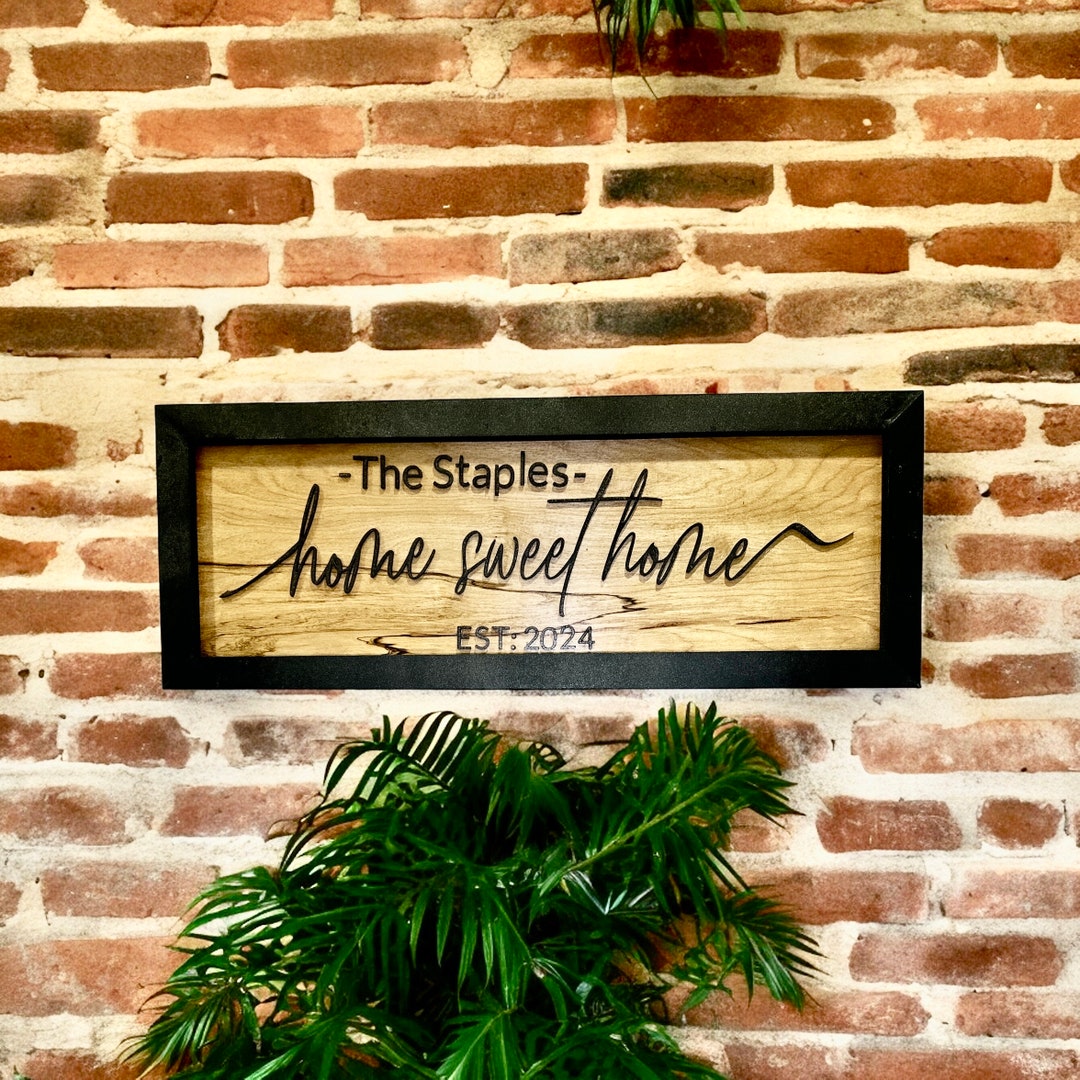 -The Staples-
home sweet home
EST: 2024